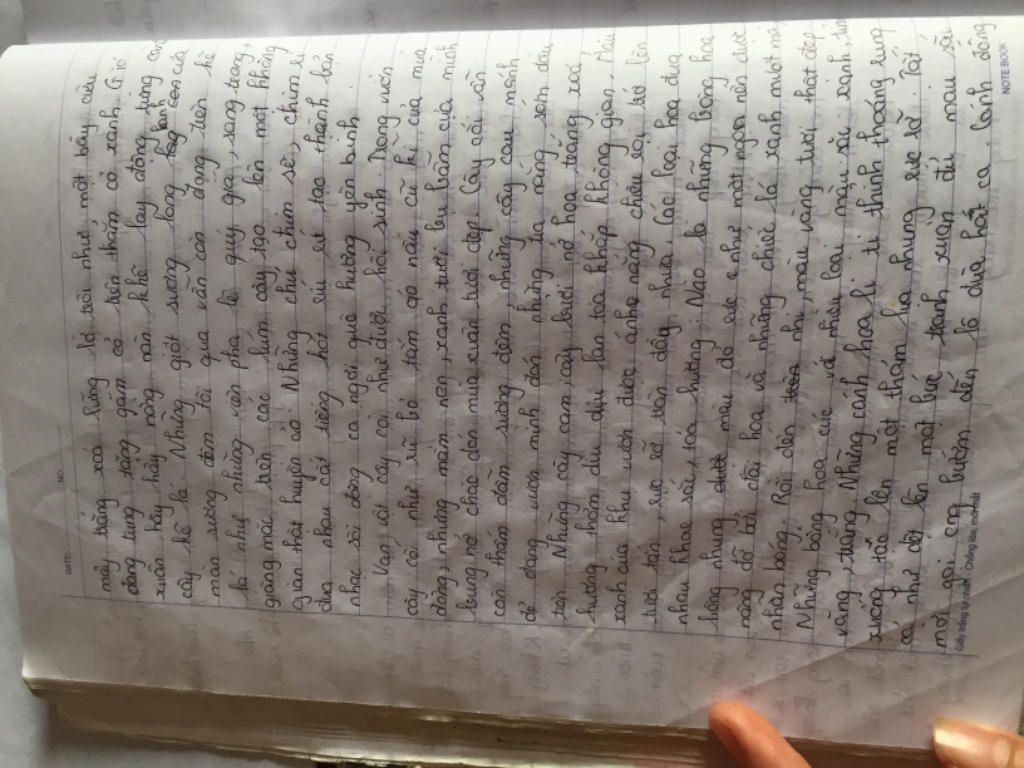 DATE: NO.
mây trắng xoá lững lờ trôi như một bầy cừu
đang tung tăng gặm cỏ trên thảm cỏ xanh. Gió
xuân hây hẩy nồng nàn, khẽ lay động từng
cây kẽ lá. Những giọt sương long lanh con của
màn sương đêm tối qua vẫn còn đọng trên kẽ
lá như những viên pha lê quý giá, sang trọng,
giăng mắc trên các lùm cây tạo lên một không
gian thật huyền ảo. Những chú chim sẻ, chim ri
đua nhau cất tiếng hót ríu rít tạo thành bản
nhạc sôi động ca ngợi quê hương yên bình.
Vạn vật cây cỏ như được hồi sinh. Trong vườn
cây cối như rũ bỏ tấm áo nâu cũ kĩ của mùa
đông, những mầm non xanh tươi
bung nở chào đón mùa xuân tươi đẹp. Cây cối vẫn
cẩn thận đắm sương đêm, những cây cau mảnh
dẻ đang vươn mình đón những tia nắng sớm đầu
tiên. Những cây cam, cây bưởi nở hoa trắng xoá,
hương thơm dìu dịu lan tỏa khắp không gian. Màu
xanh của khu vườn được ánh nắng chiếu rọi trở lên
tươi tắn, rực rỡ tràn đầy nhựa. Các loại hoa đua
nhau khoe sắc, toả hương. Nào là những bông hoa
hồng nhung màu đỏ rực như một ngọn nến được
nâng đỡ bởi đài hoa và những chiếc lá xanh mướt
nhẵn bóng. Rồi đến nhị, màu vàng tươi thật đẹp,
Những bông hoa cúc với nhiều loại, màu sắc: xanh,
vàng, trắng. Những cánh hoa li ti thỉnh thoảng rụng
xuống tạo lên một thảm hoa nhung rực rỡ. Tôi
cứ như cất lên
mọi nơi, ong bướm đến lả đùa hát ca. Cánh đồng
Giấy trắng tự nhiên - Chống lóa, mỏi mắt NOTE BOOK